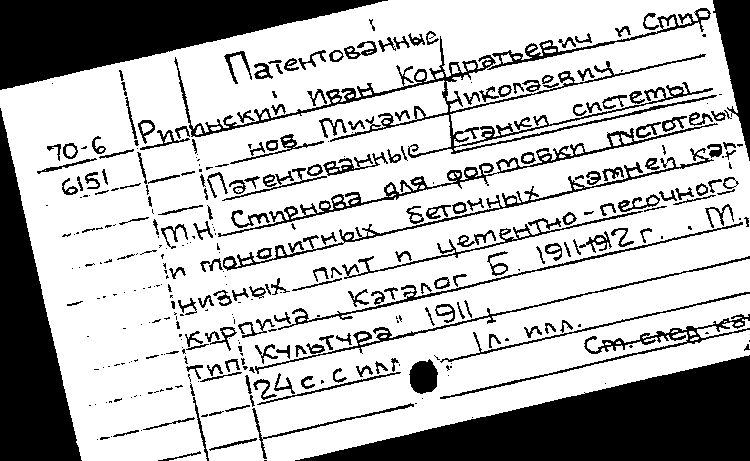 Патентованные
Рипинский, Иван Кондратьевич и Смир-
70-6 нов, Михаил Николаевич.
6151 Патентованные станки системы
М.Н. Смирнова для формовки пустотелых
и монолитных бетонных камней, кар-
низных плит и цементно-песочного
кирпича. Каталог Б. 1911-1912 г. М.,
тип. "Культура", 1911.
24 с. с илл. 1 л. илл.
См. след. ка